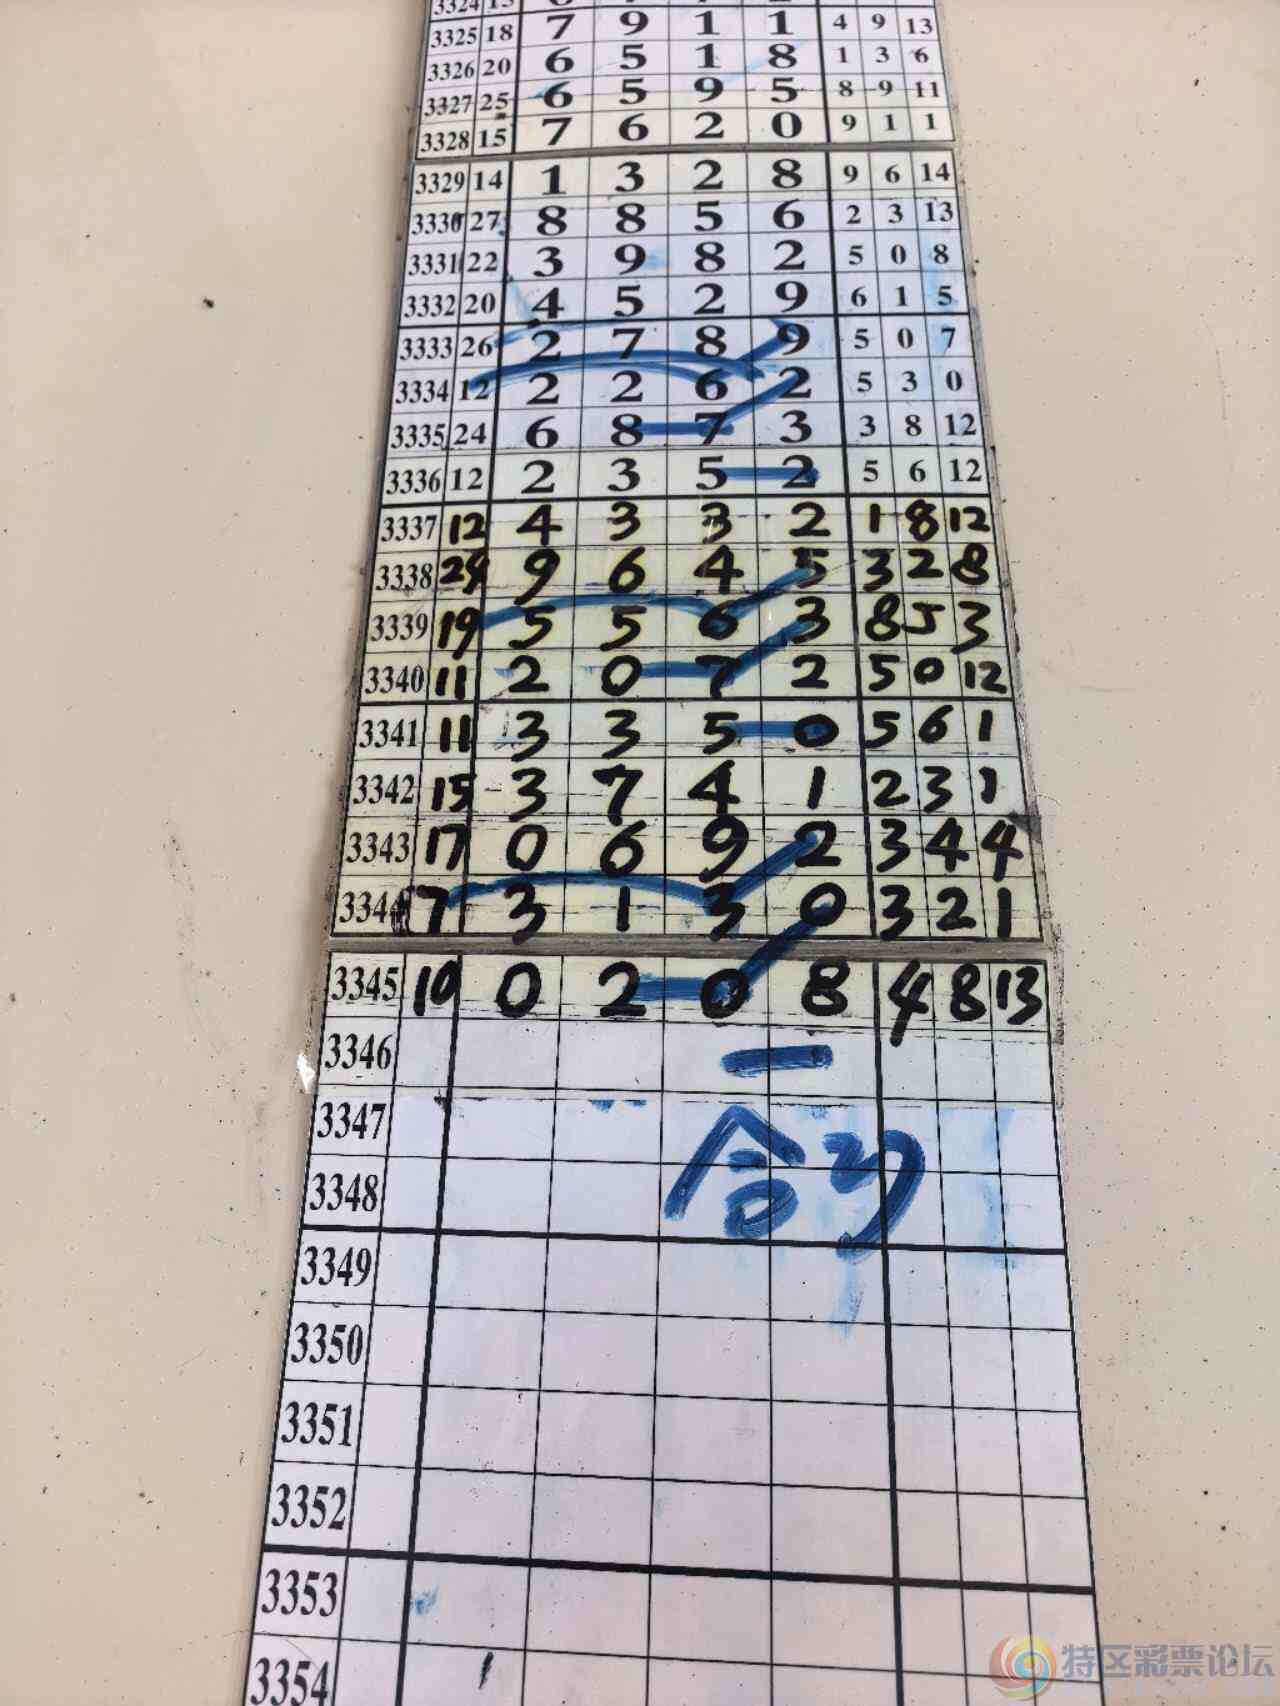 3325 18 7 9 1 1 4 9 13
3326 20 6 5 1 8 1 3 6
3327 25 6 5 9 5 8 9 11
3328 15 7 6 2 0 9 1 1
3329 14 1 3 2 8 9 6 14
3330 27 8 8 5 6 2 3 13
3331 22 3 9 8 2 5 0 8
3332 20 4 5 2 9 6 1 5
3333 26 2 7 8 9 5 0 7
3334 12 2 2 6 2 5 3 0
3335 24 6 8 7 3 3 8 12
3336 12 2 3 5 2 5 6 12
3337 12 4 3 3 2 1 8 12
3338 24 9 6 4 5 3 2 8
3339 19 5 5 6 3 8 5 3
3340 11 2 0 7 2 5 0 12
3341 11 3 3 5 0 5 6 1
3342 15 3 7 4 1 2 3 1
3343 17 0 6 9 2 3 4 4
3344 7 3 1 3 0 3 2 1
3345 10 0 2 0 8 4 8 13
3346
3347
合
3348
3349
3350
3351
3352
3353
3354
特区彩票论坛